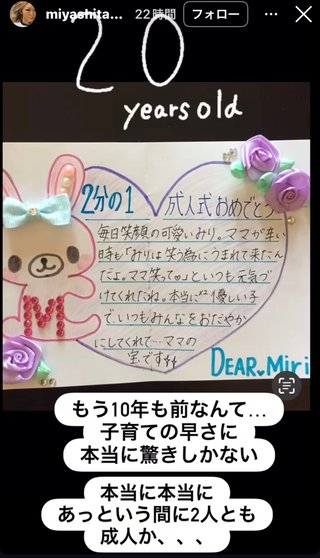 miyashita... 22時間 フォロー
20
years old
2分の1 成人式おめでとう
毎日笑顔の可愛いみり。ママが辛い
時も「みりは笑う為にうまれて来たん
だよ。ママ笑って♡」といつも元気づ
けてくれたね。本当に×2 優しい子
でいつもみんなをおだやか
にしてくれて…ママの
宝です
M
DEAR♥Miri
もう10年も前なんて…
子育ての早さに
本当に驚きしかない
本当に本当に
あっという間に2人とも
成人か、、、